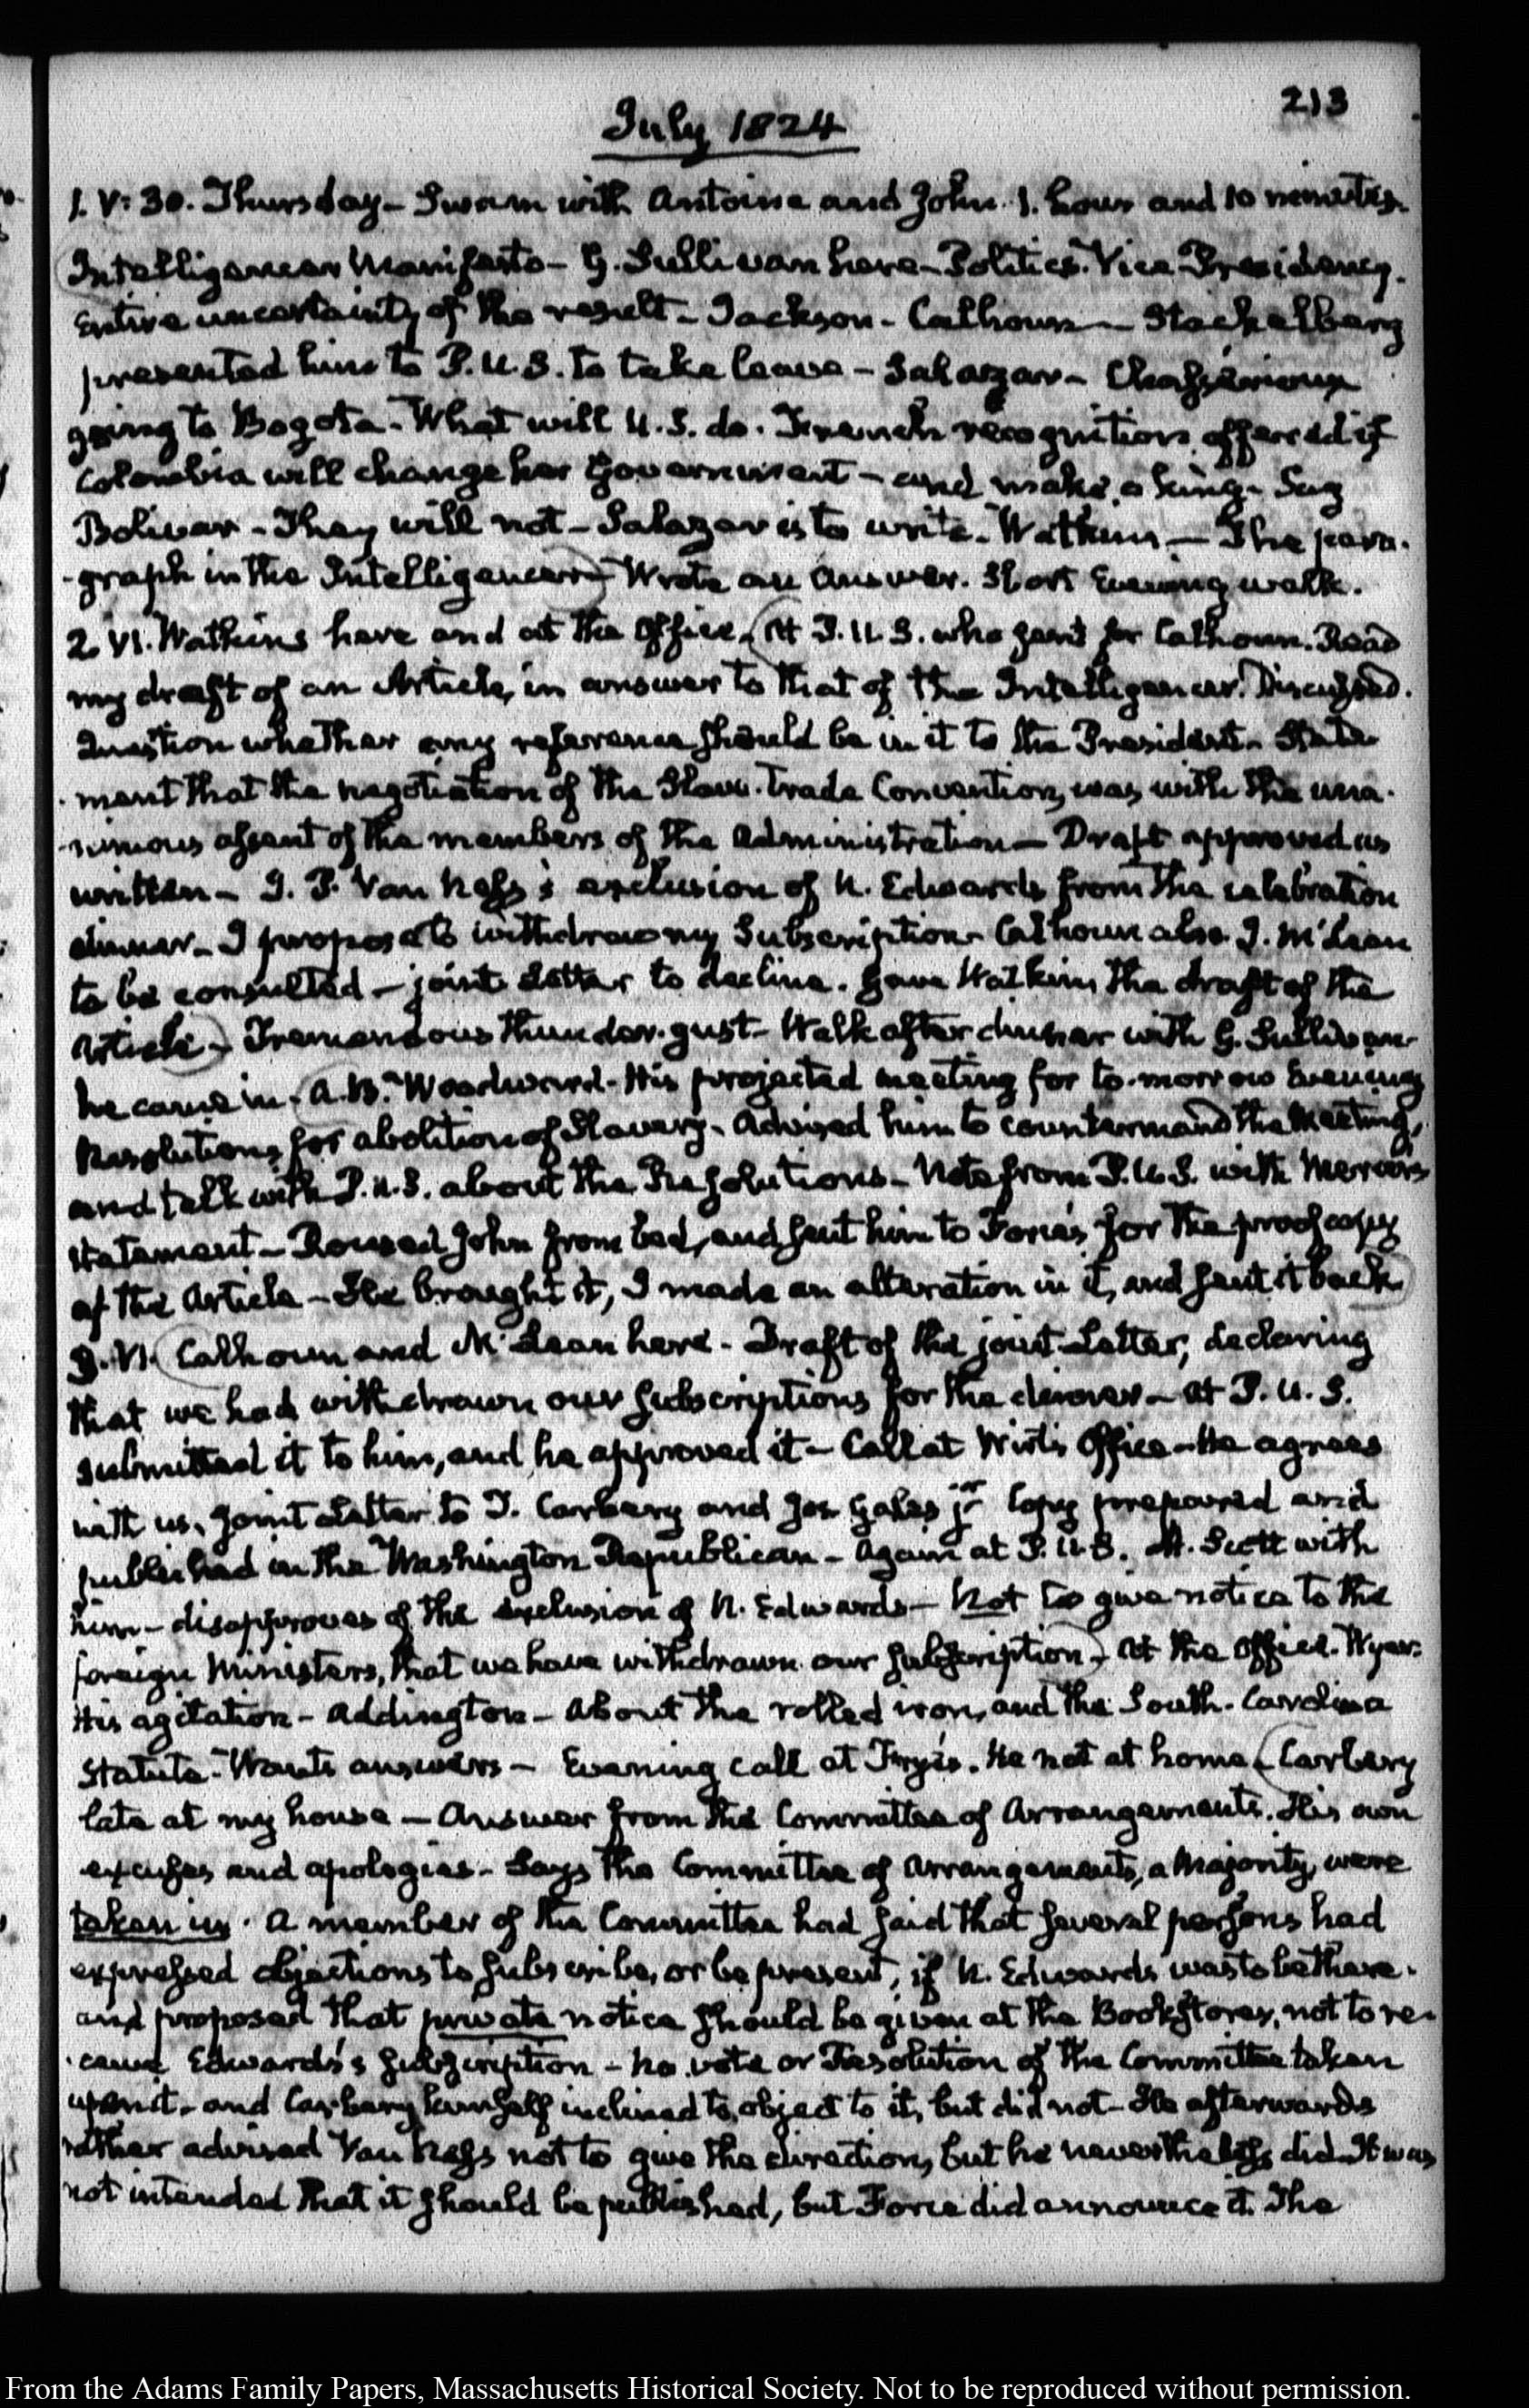 213
July 1824
1. V: 30. Thursday – Swam with Antoine and John. 1. hour and 10 minutes.
Intelligencer Manifesto – G. Sullivan here – Politics. Vice Presidency.
Entire uncertainty of the result – Jackson – Calhoun – Stackelberg
presented him to P. U. S. to take leave – Salazar – Chassérioux
going to Bogota. What will U. S. do. French recognition offered if
Colombia will change her Government – and make a king – Say
Bolivar – They will not – Salazar is to write. Watkins – The para-
-graph in the Intelligencer – Wrote an Answer. Short Evening walk.
2. VI. Watkins here and at the Office. At P. U. S. who sent for Calhoun. Read
my draft of an Article, in answer to that of the Intelligencer. Discussed.
Question whether any reference should be in it to the President – State-
-ment that the negotiation of the Slave-Trade Convention, was with the una-
-nimous assent of the members of the Administration – Draft approved as
written – J. P. Van Ness's exclusion of N. Edwards from the celebration
dinner – I propose to withdraw my Subscription – Calhoun also. J. McLean
to be consulted – joint Letter to decline. Gave Watkins the draft of the
Article – Tremendous thunder-gust – Walk after dinner with G. Sullivan
he came in. A. B. Woodward. His projected meeting for to-morrow Evening
Resolutions for abolition of Slavery – Advised him to countermand the Meeting,
and talk with P. U. S. about the Resolutions – Note from P. U. S. with Mercer's
statement – Roused John from bed, and sent him to Force's for the proof copy
of the Article – He brought it, I made an alteration in it, and sent it back
3. VI. Calhoun and McLean here – Draft of the joint Letter, declaring
that we had withdrawn our subscriptions for the dinner – At P. U. S.
submitted it to him, and he approved it – Call at Wirt's Office – He agrees
with us. Joint Letter to T. Carbery and Jos. Gales jr. Copy prepared and
published in the Washington Republican – Again at P. U. S. A. Scott with
him – disapproves of the exclusion of N. Edwards – Not to give notice to the
foreign Ministers, that we have withdrawn our subscription – At the Office. Wyer.
His agitation – Addington – About the rolled iron, and the South-Carolina
Statute – Wants answers – Evening call at Frye's. He not at home – Carbery
late at my house – Answer from the Committee of Arrangements. His own
excuses and apologies – Says the Committee of Arrangements, a Majority, were
taken in. A member of the Committee had said that several persons had
expressed objections to subscribe, or be present, if N. Edwards was to be there.
and proposed that private notice should be given at the Bookstores, not to re-
-ceive Edwards's subscription – No vote or Resolution of the Committee taken
upon it – and Carbery himself inclined to object to it, but did not – He afterwards
rather advised Van Ness not to give the direction, but he nevertheless did. It was
not intended that it should be published, but Force did announce it. The
From the Adams Family Papers, Massachusetts Historical Society. Not to be reproduced without permission.